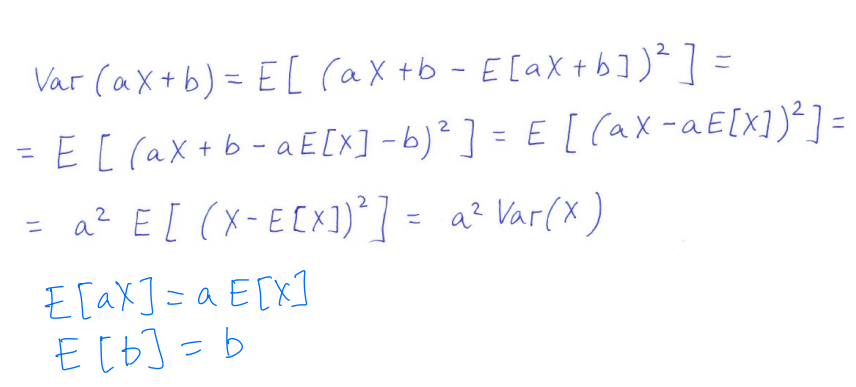 Var(aX+b) = E[(aX+b-E[aX+b])²] =
= E[(aX+b-aE[X]-b)²] = E[(aX-aE[X])²] =
= a² E[(X-E[X])²] = a² Var(X)
E[aX] = a E[X]
E[b] = b